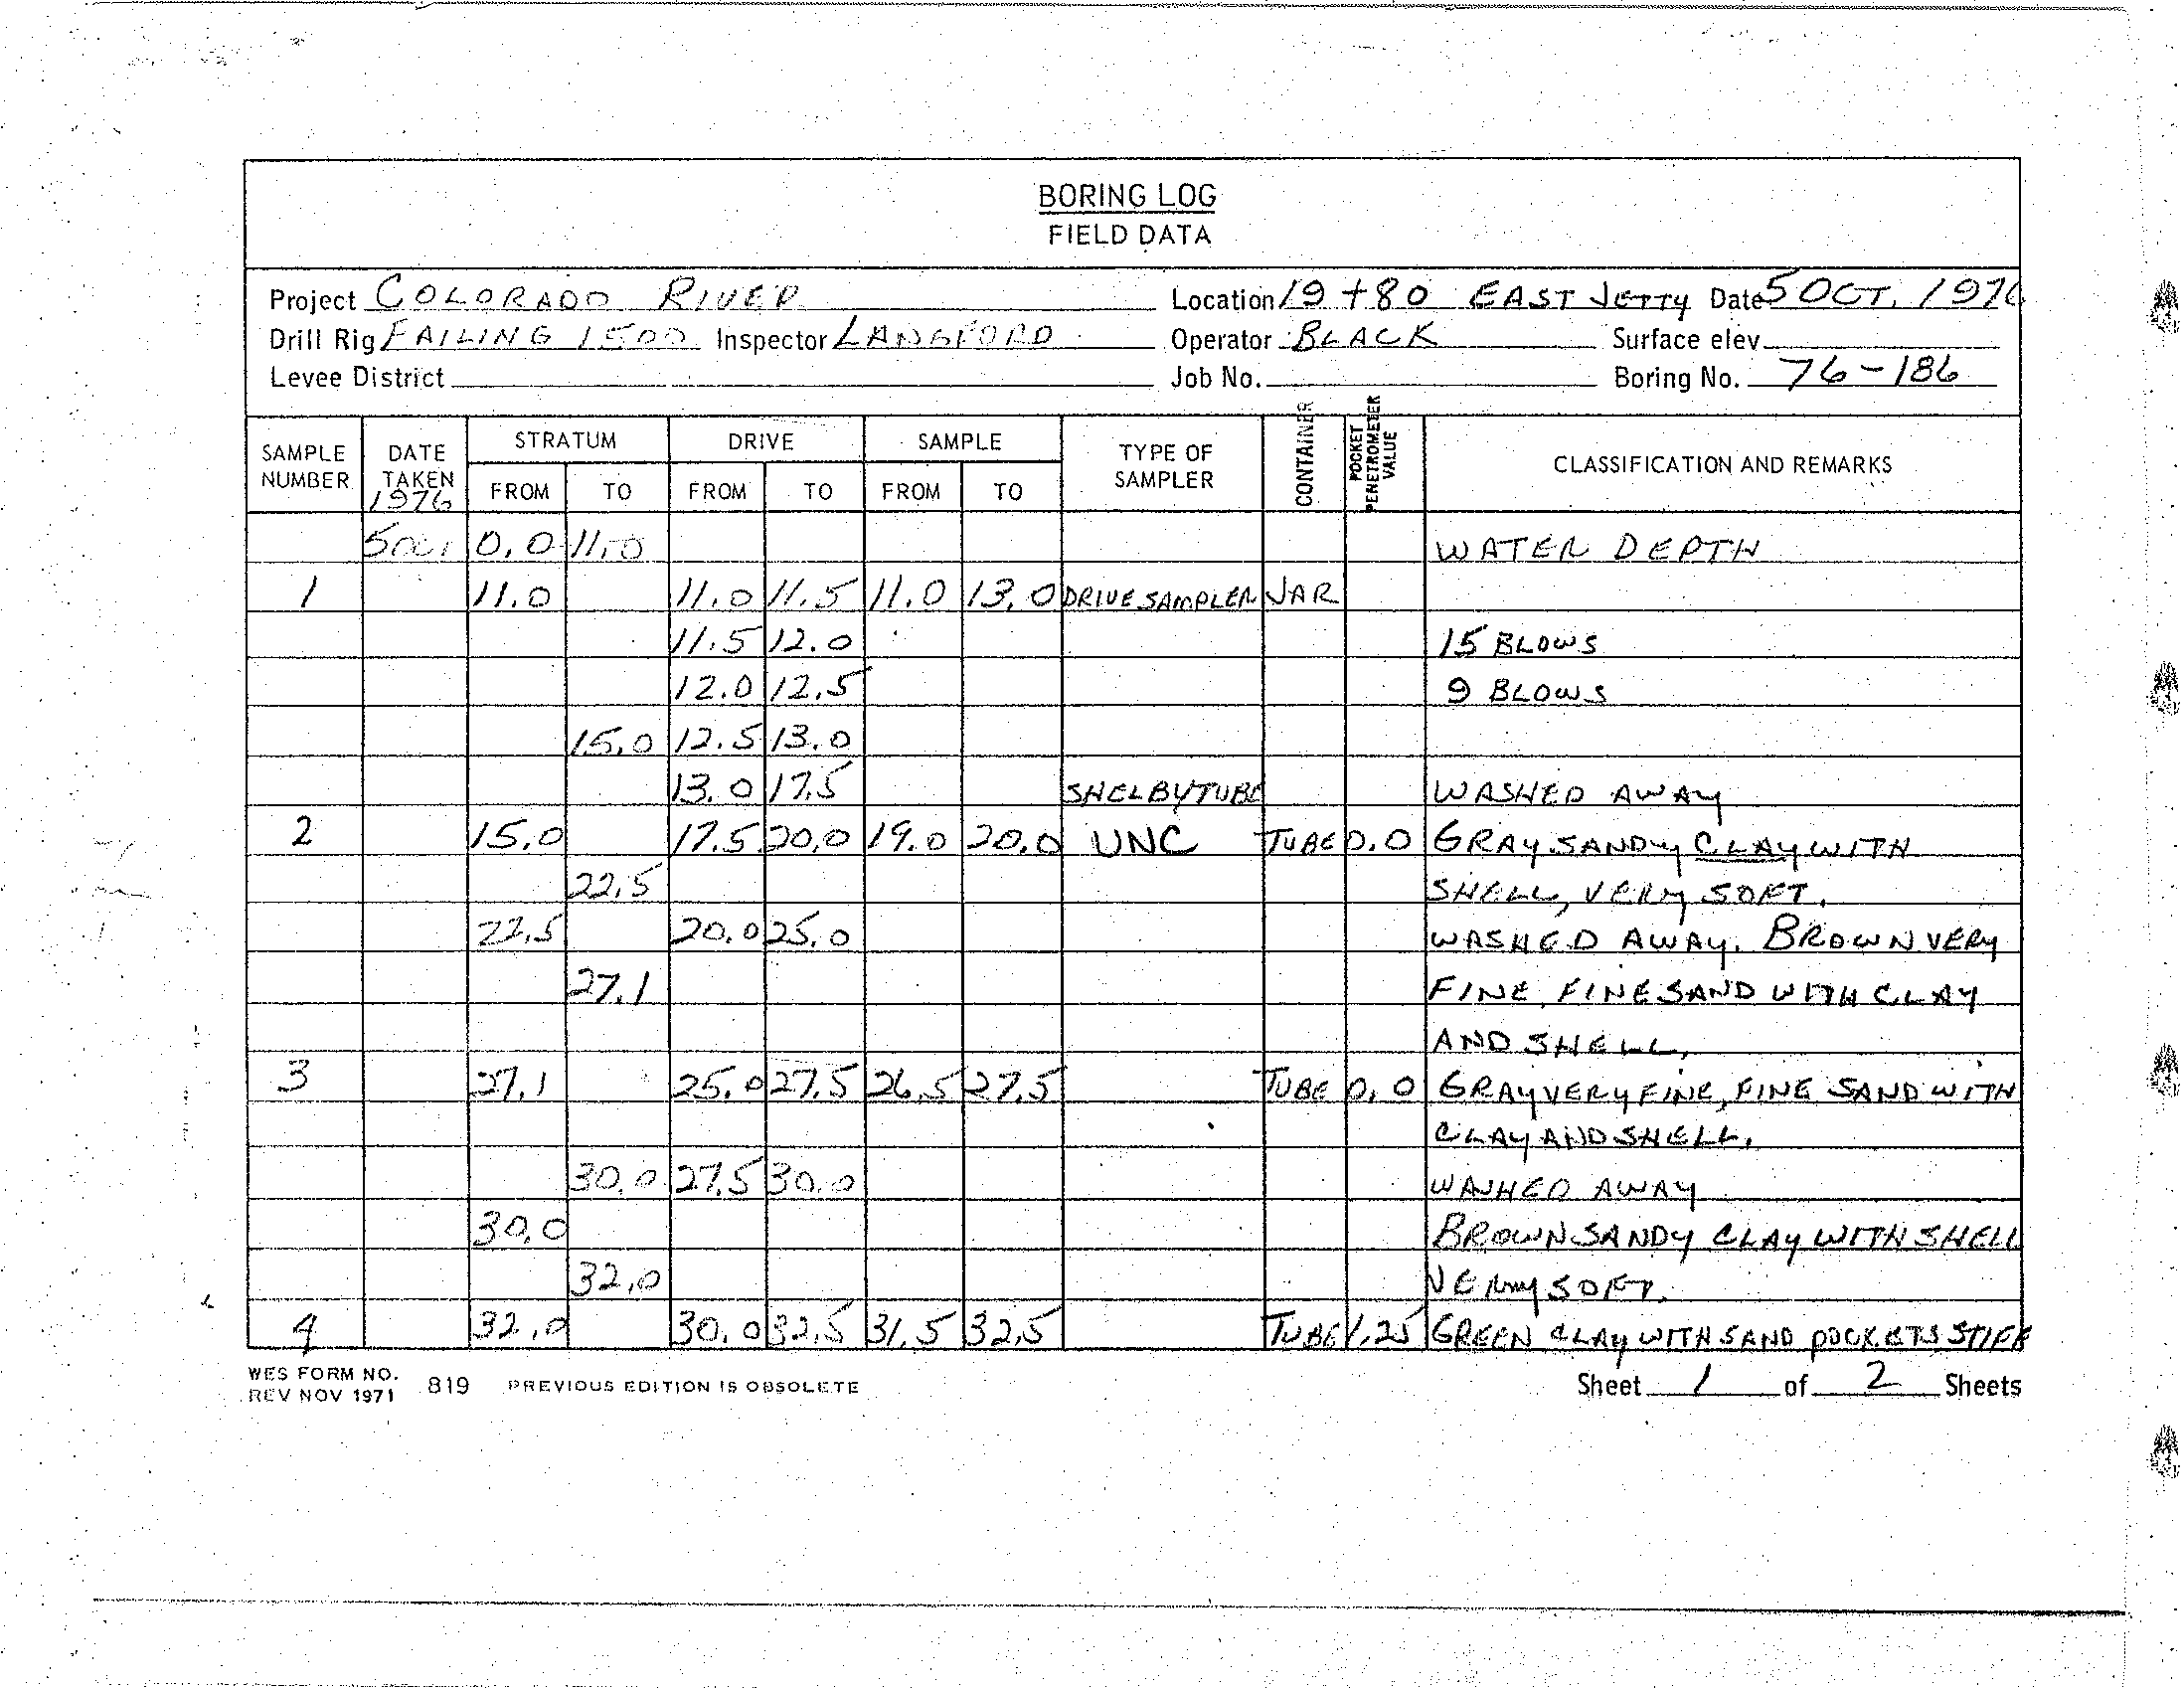 BORING LOG
FIELD DATA
Project COLORADO RIVER Location 19+80 EAST JETTY Date 5 OCT. 1976
Drill Rig FAILING 1500 Inspector LANGFORD Operator BLACK Surface elev.
Levee District Job No. Boring No. 76-186
SAMPLE NUMBER DATE TAKEN 1976 STRATUM FROM TO DRIVE FROM TO SAMPLE FROM TO TYPE OF SAMPLER CONTAINER POCKET PENETROMETER VALUE CLASSIFICATION AND REMARKS
5 OCT 0.0 11.0 WATER DEPTH
1 11.0 11.0 11.5 11.0 13.0 DRIVE SAMPLER JAR
11.5 12.0 15 BLOWS
12.0 12.5 9 BLOWS
15.0 12.5 13.0
13.0 17.5 SHELBY TUBE WASHED AWAY
2 15.0 17.5 20.0 19.0 20.0 UNC TUBE 0.0 GRAY SANDY CLAY WITH
22.5 SHELL, VERY SOFT.
22.5 20.0 25.0 WASHED AWAY. BROWN VERY
27.1 FINE, FINE SAND WITH CLAY
AND SHELL.
3 27.1 25.0 27.5 26.5 27.5 TUBE 0.0 GRAY VERY FINE, FINE SAND WITH
CLAY AND SHELL.
30.0 27.5 30.0 WASHED AWAY
30.0 BROWN SANDY CLAY WITH SHELL
32.0 VERY SOFT.
4 32.0 30.0 32.5 31.5 32.5 TUBE 1.25 GREEN CLAY WITH SAND POCKETS STIFF
WES FORM NO. 819 PREVIOUS EDITION IS OBSOLETE
REV NOV 1971
Sheet 1 of 2 Sheets